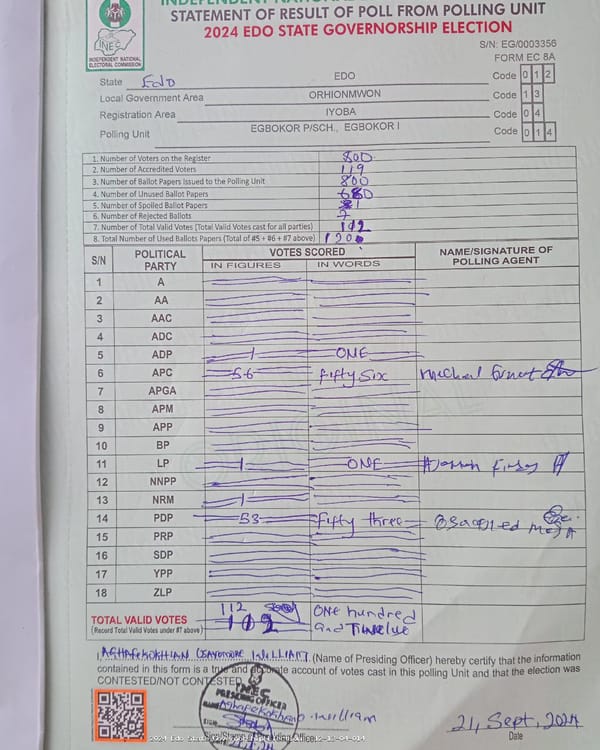 INDEPENDENT NATIONAL
STATEMENT OF RESULT OF POLL FROM POLLING UNIT
2024 EDO STATE GOVERNORSHIP ELECTION
INEC
INDEPENDENT NATIONAL
ELECTORAL COMMISSION
S/N: EG/0003356
FORM EC 8A
State Edo EDO Code 0 1 2
Local Government Area ORHIONMWON Code 1 3
Registration Area IYOBA Code 0 4
Polling Unit EGBOKOR P/SCH., EGBOKOR I Code 0 1 4
1. Number of Voters on the Register 800
2. Number of Accredited Voters 119
3. Number of Ballot Papers Issued to the Polling Unit 800
4. Number of Unused Ballot Papers 680
5. Number of Spoiled Ballot Papers 1
6. Number of Rejected Ballots 7
7. Number of Total Valid Votes (Total Valid Votes cast for all parties) 112
8. Total Number of Used Ballots Papers (Total of #5 + #6 + #7 above) 120
S/N POLITICAL PARTY VOTES SCORED NAME/SIGNATURE OF POLLING AGENT
IN FIGURES IN WORDS
1 A
2 AA
3 AAC
4 ADC
5 ADP 1 ONE
6 APC 56 Fifty Six
7 APGA
8 APM
9 APP
10 BP
11 LP 1 ONE
12 NNPP
13 NRM 1
14 PDP 53 Fifty three
15 PRP
16 SDP
17 YPP
18 ZLP
TOTAL VALID VOTES 112 ONE hundred
(Record Total Valid Votes under #7 above) 112 and Twelve
I, WILLIAM (Name of Presiding Officer) hereby certify that the information
contained in this form is a true and accurate account of votes cast in this polling Unit and that the election was
CONTESTED/NOT CONTESTED
INEC
PRESIDING OFFICER
William
21, Sept, 2024
Date